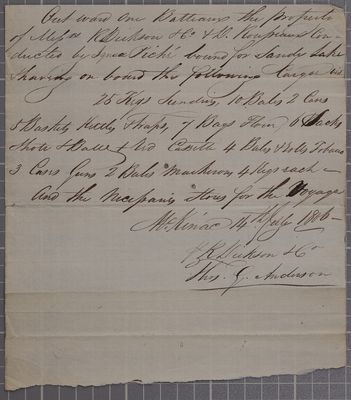 Out ward One Batteaux the property
of Messrs R Dickson & Co & Dr Con-
ducted by bound for Sandy Lake
Having on board the following Cargo Viz
25 Kegs Sundries 10 Bales 2 Cases
5 Baskets Kettles 7 Bags Flour 6 Sacks
Shott & Balls & 4 Bales & Rolls Tobacco
3 Cases Guns 2 Bales 4 Kegs each —
And the Necessary Stores for the Voyage
McKinac 14th July 1806 —
R Dickson & Co
Thos. G. Anderson